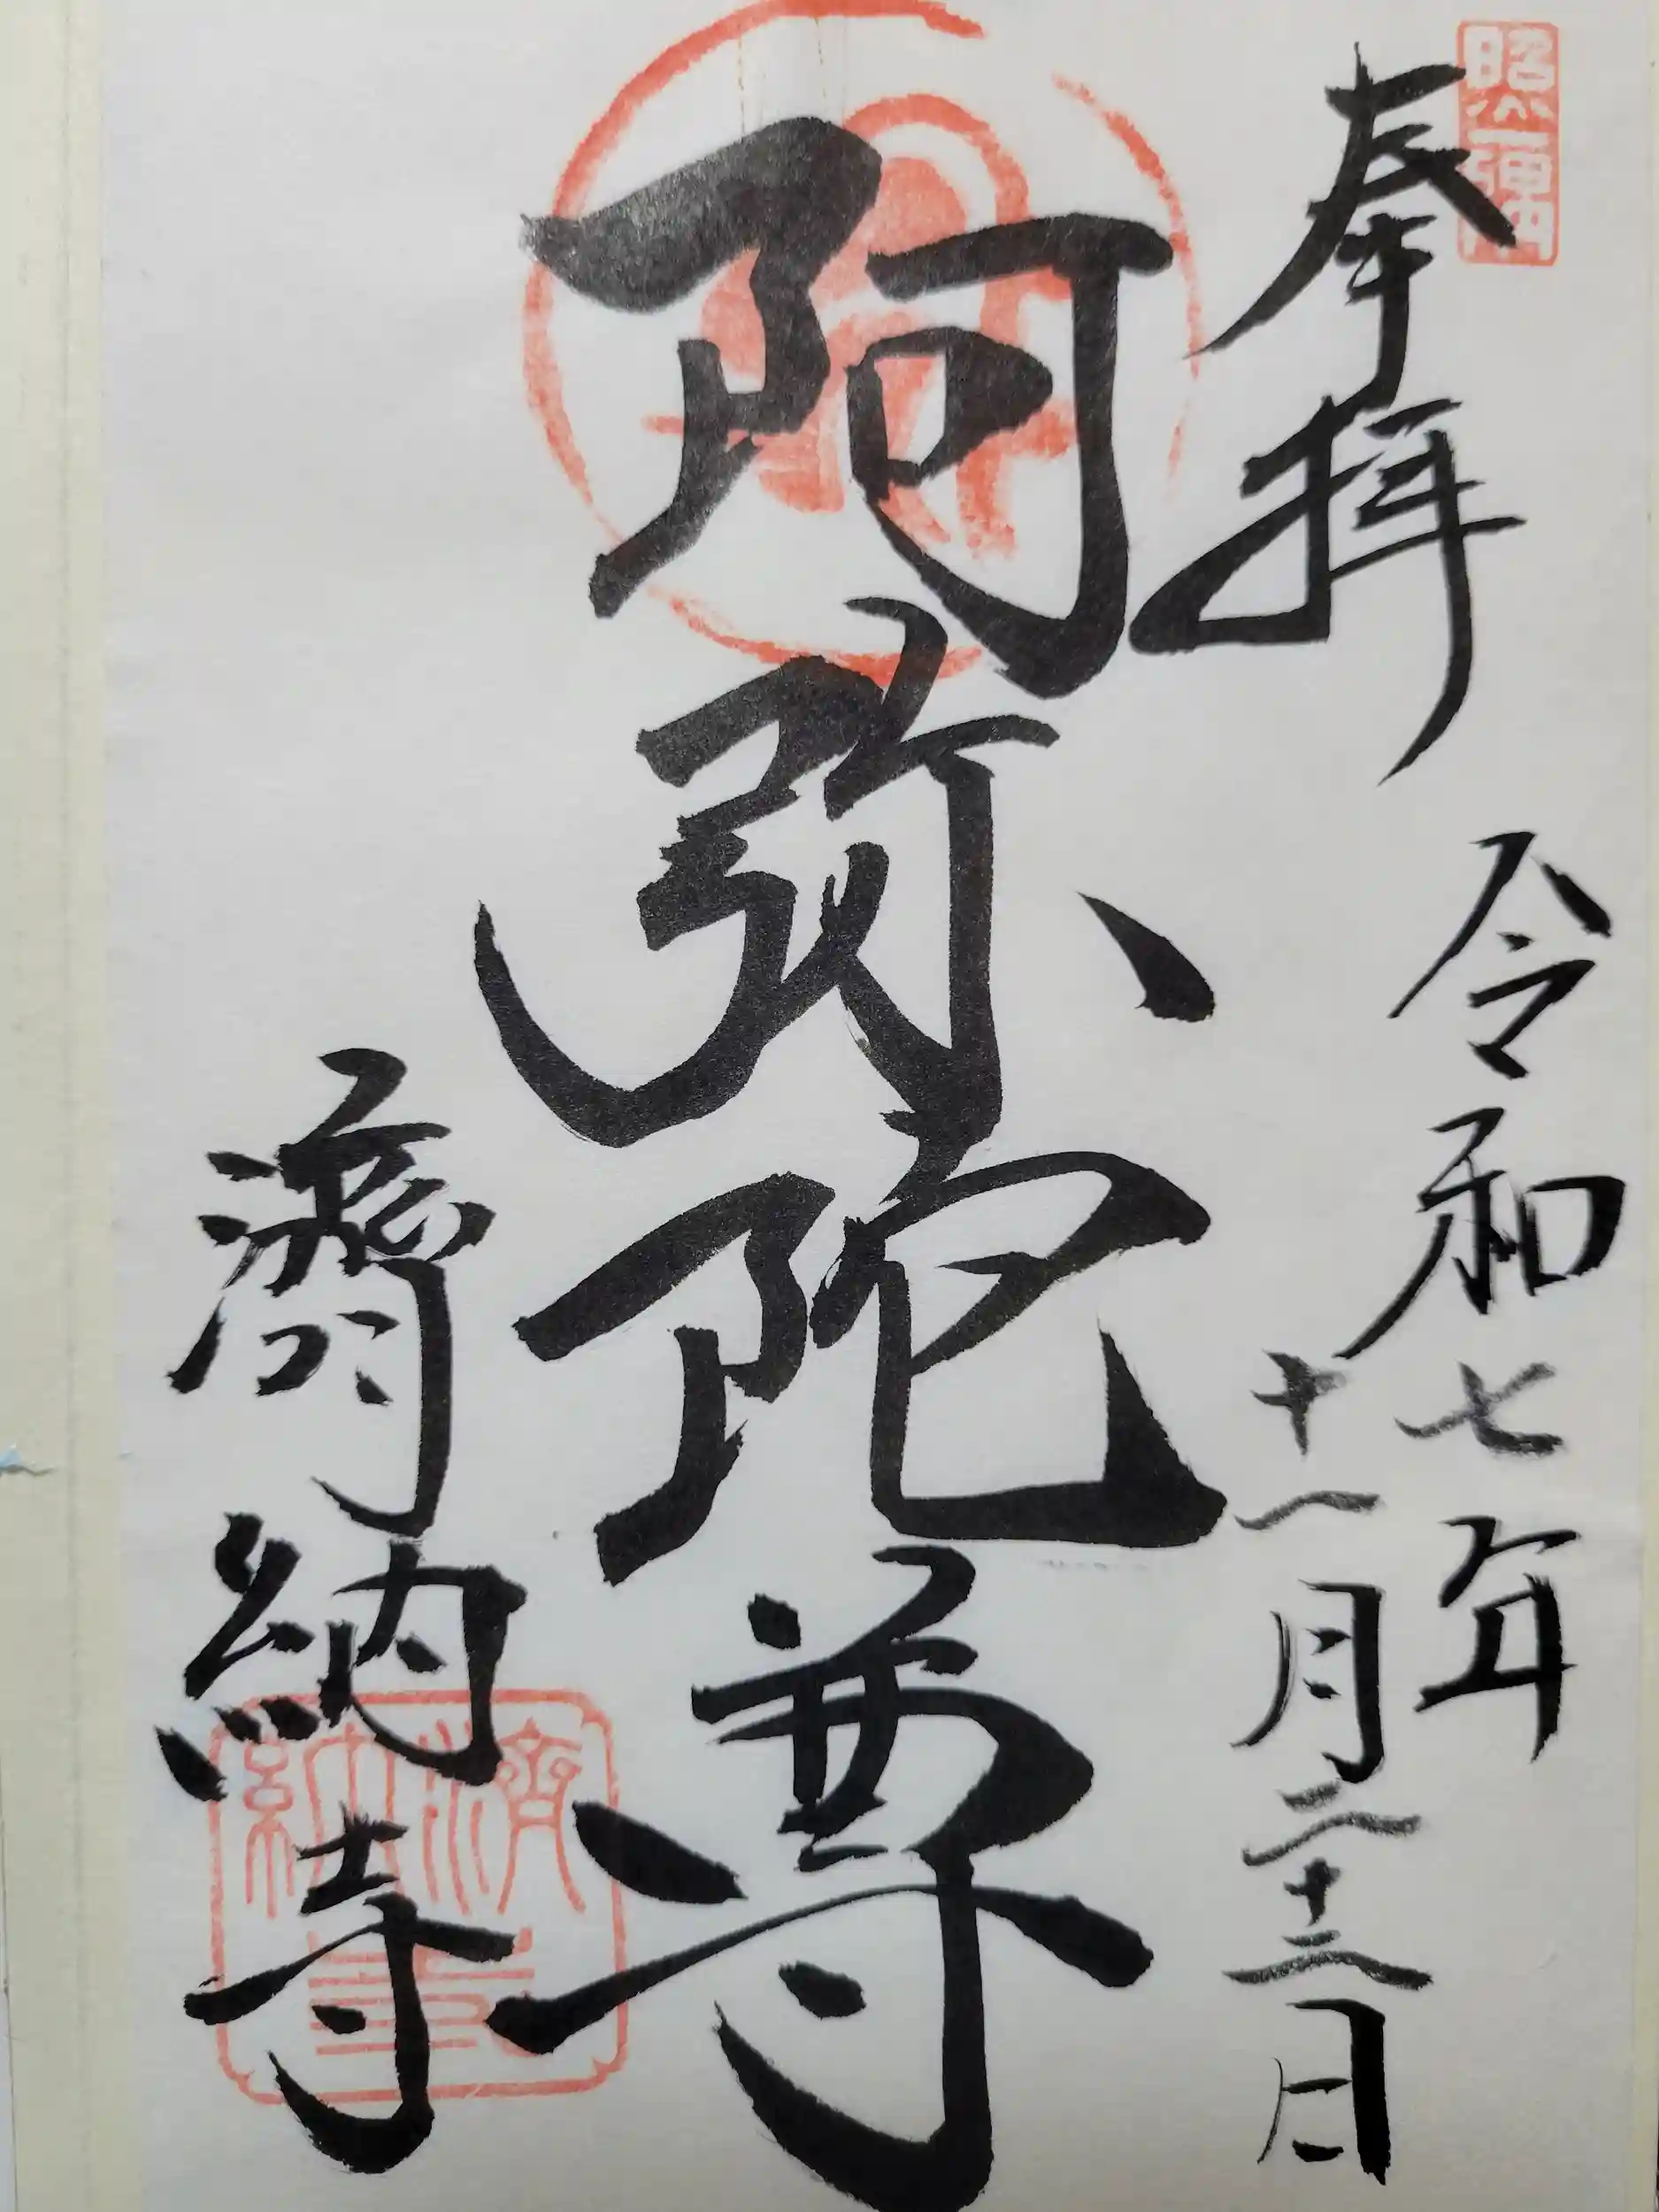 照一隅
奉拝
令和七年
十一月二十三日
阿弥陀尊
濟納寺
濟納寺